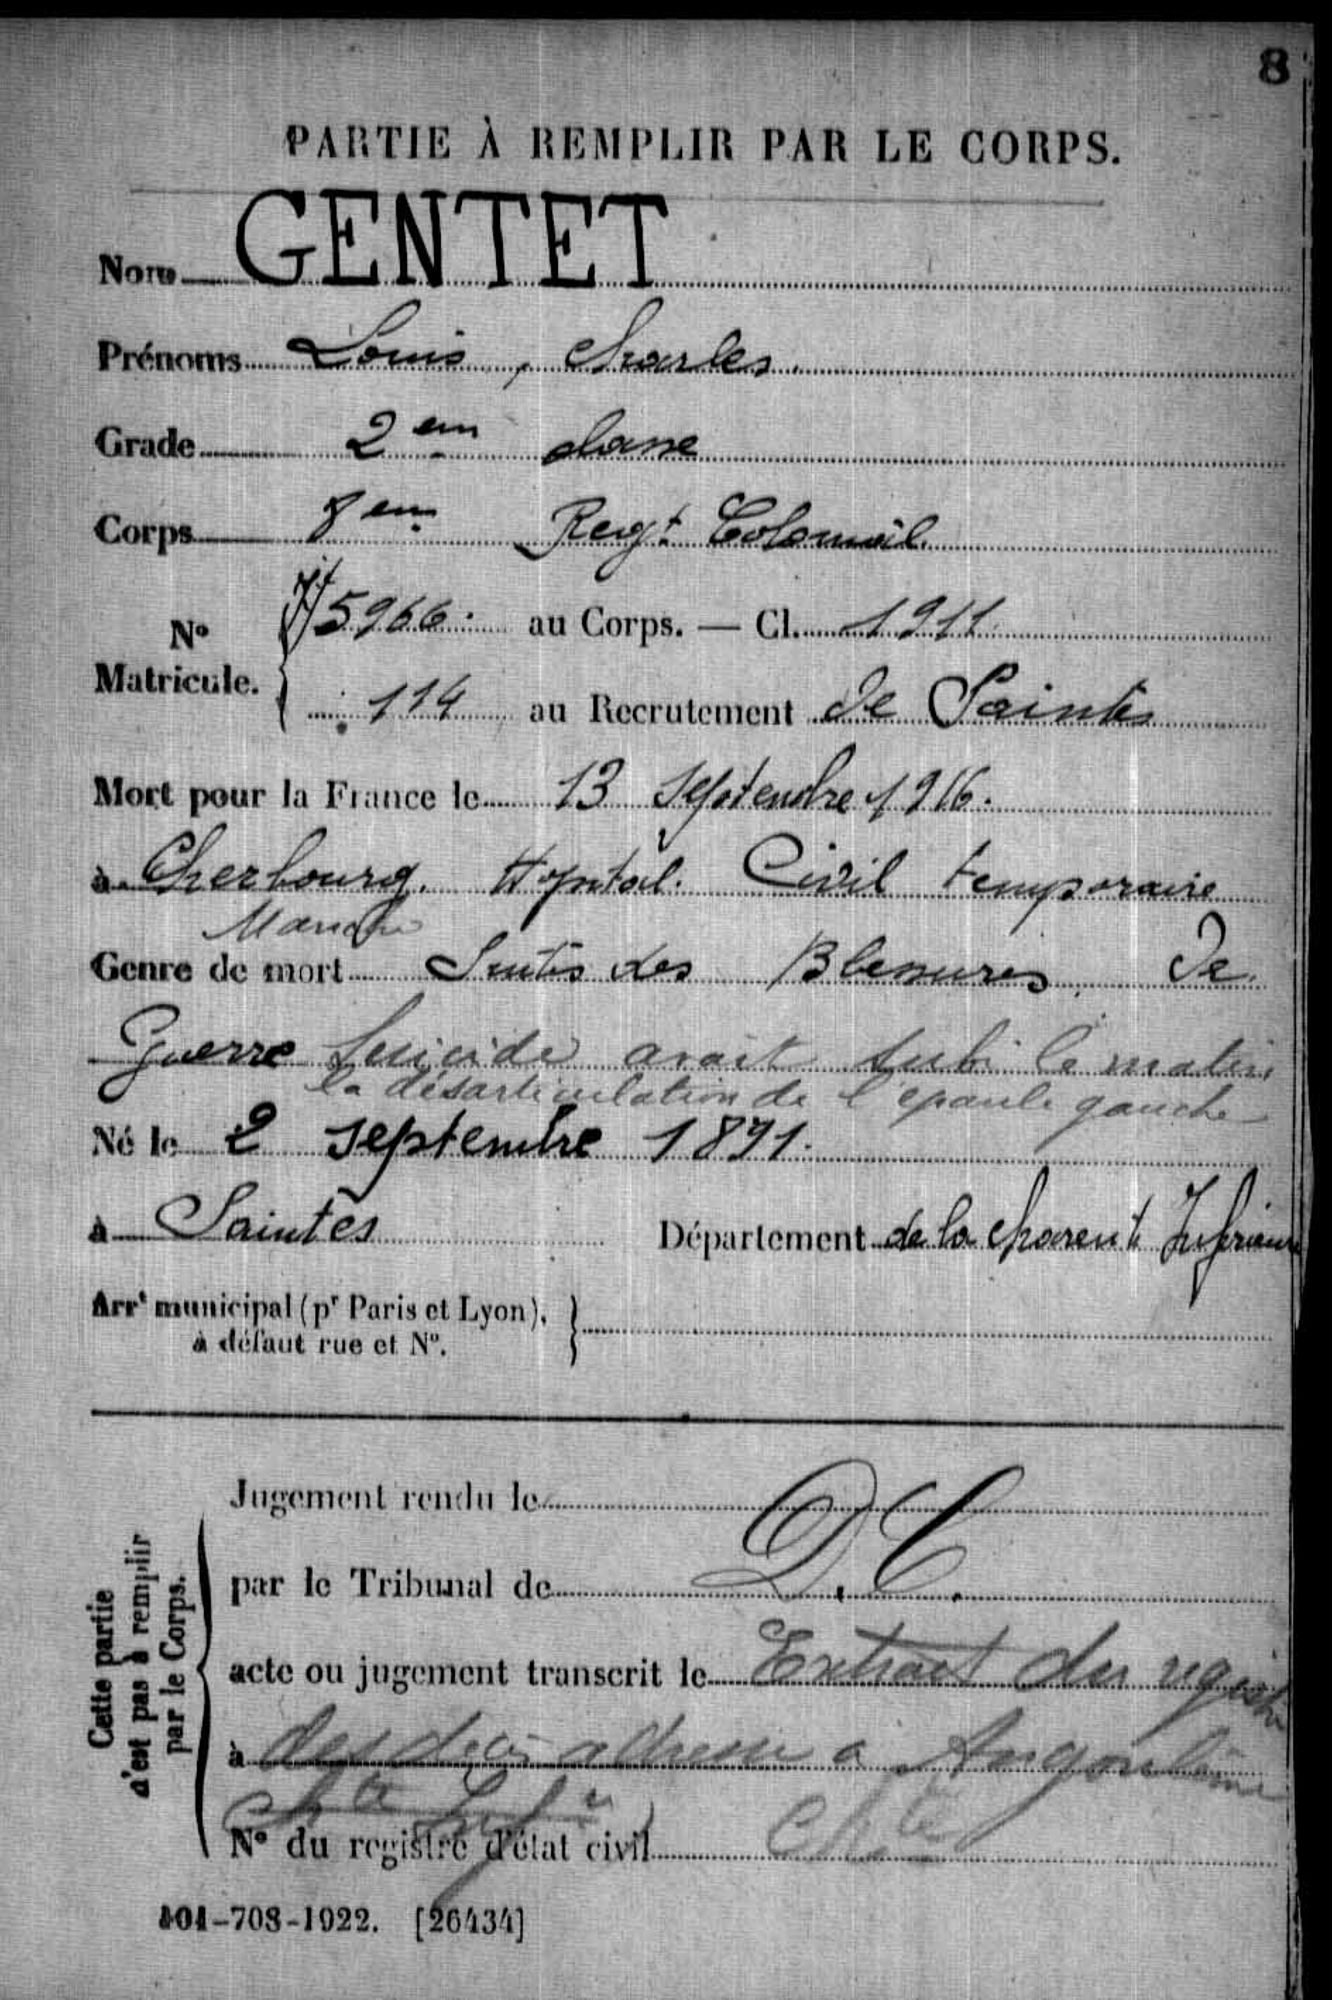 8
PARTIE À REMPLIR PAR LE CORPS.
Nom GENTET
Prénoms Louis, Charles.
Grade 2em classe
Corps 8em Regt Colonial.
No Matricule. 5966. au Corps. — Cl. 1911
114 au Recrutement de Saintes
Mort pour la France le 13 Septembre 1916.
à Cherbourg. Hopital. Civil temporaire
Manche
Genre de mort Suites des Blessures de
Guerre Suicide avait subi le matin
la désarticulation de l'epaule gauche
Né le 2 Septembre 1891.
à Saintes Département de la Charente Inferieure
Arrt municipal (pr Paris et Lyon),
à défaut rue et No.
Cette partie
n'est pas à remplir
par le Corps.
Jugement rendu le
par le Tribunal de D.C.
acte ou jugement transcrit le Extrait des registre
à des decès adresse a Angoulème
Chte Infre
No du registre d'état civil Chte
101-708-1922. [26434]